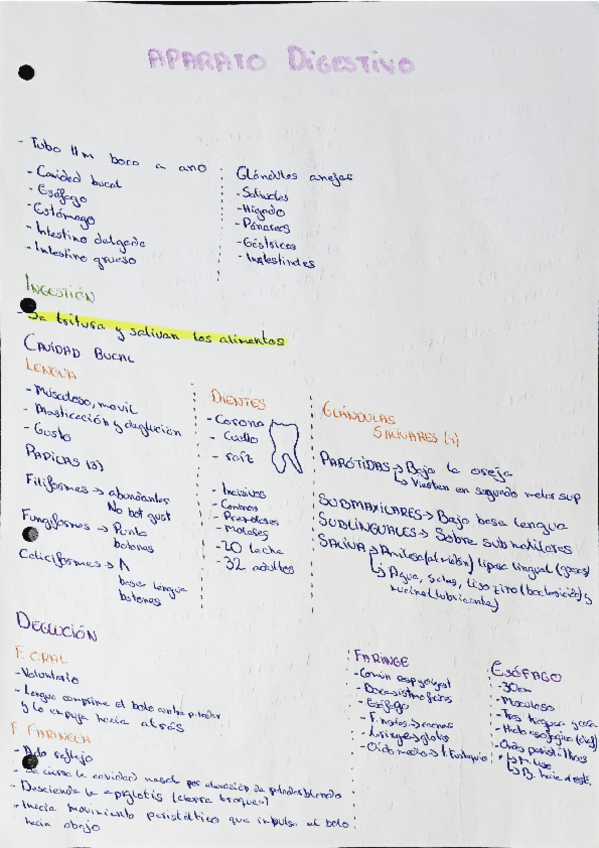 APARATO DIGESTIVO
- Tubo 11m boca a ano
- Cavidad bucal
- Esófago
- Estómago
- Intestino delgado
- Intestino grueso
Glándulas anejas
- Salivales
- Hígado
- Páncreas
- Gástricas
- Intestinales
INGESTIÓN
- Se tritura y salivan los alimentos
CAVIDAD BUCAL
LENGUA
- Musculoso, movil
- Masticación y deglución
- Gusto
PAPILAS (3)
Filiformes → abundantes
No bot gust
Fungiformes → Punta
botones
Caliciformes → Λ
base lengua
botones
DIENTES
- Corona
- Cuello
- raíz
- Incisivos
- Caninos
- Premolares
- Molares
- 20 leche
- 32 adultos
GLÁNDULAS
SALIVARES (4)
PARÓTIDAS → Bajo la oreja
↳ Vierten en segundo molar sup
SUBMAXILARES → Bajo base lengua
SUBLINGUALES → Sobre submaxilares
SALIVA → Amilasa (almidón) lipasa lingual (grasas)
↳ Agua, sales, lisozima y
mucina (lubricante)
DEGLUCIÓN
F. ORAL
- Voluntario
- Lengua comprime el bolo contra paladar
y lo empuja hacia atrás
F. FARINGEA
- Acto reflejo
- Se cierra la cavidad nasal por elevación de paladar blando
- Desciende la epiglotis (cierra traquea)
- Inicia movimiento peristáltico que impulsa al bolo
hacia abajo
FARINGE
- Común resp y digest
- Esófago
- F. nasales → coanas
- Laringe → glotis
- Oido medio → t. Eustaquio
ESÓFAGO
- 30cm
- Musculoso
- Hiato esofágico
- Ondas peristálticas